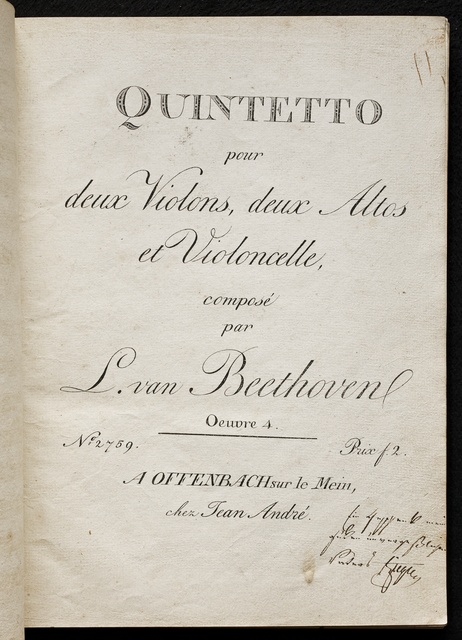 QUINTETTO
pour
deux Violons, deux Altos
et Violoncelle,
composé
par
L. van Beethoven
Oeuvre 4.
Nº 2759. Prix f. 2.
A OFFENBACH sur le Mein,
chez Jean André.